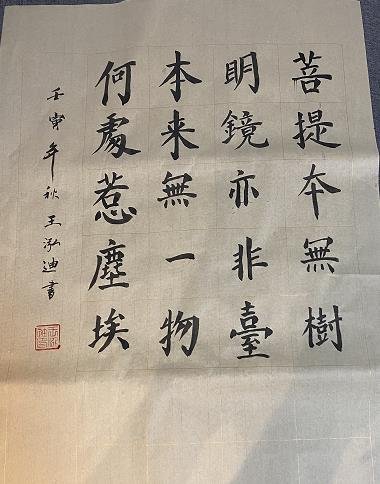 菩提本無樹
明鏡亦非臺
本来無一物
何處惹塵埃
壬寅年秋王泓迪書